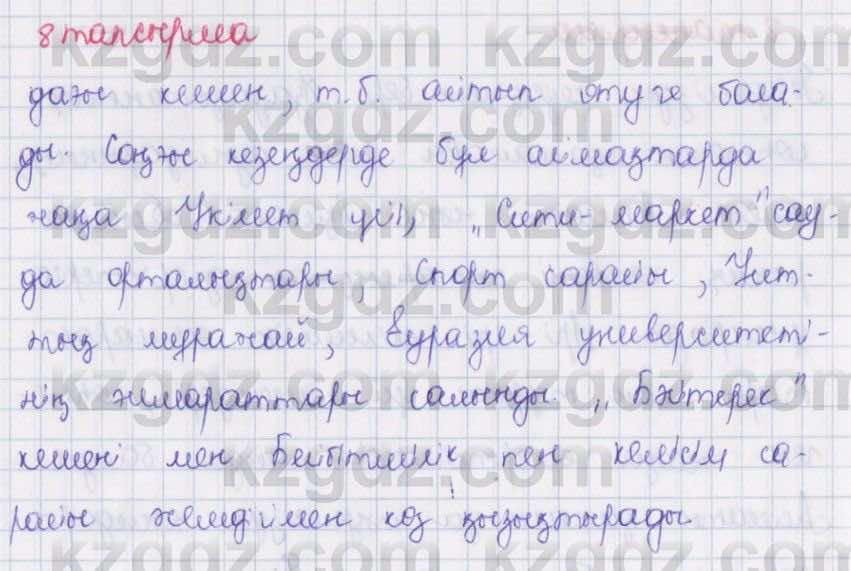 8 тапсырма
дағы кешен, т.б. айтып өтуге бола-
ды. Соңғы кезеңдерде бұл аймақтарда
жаңа Үкімет үйі, „Сити-маркет" сау-
да орталықтары, Спорт сарайы, Ұлт-
тық мұражай, Еуразия университеті-
нің ғимараттары салынды. „Бәйтерек"
кешені мен Бейбітшілік пен келісім са-
райы әсемдігімен көз қызықтырады
kzgdz.com